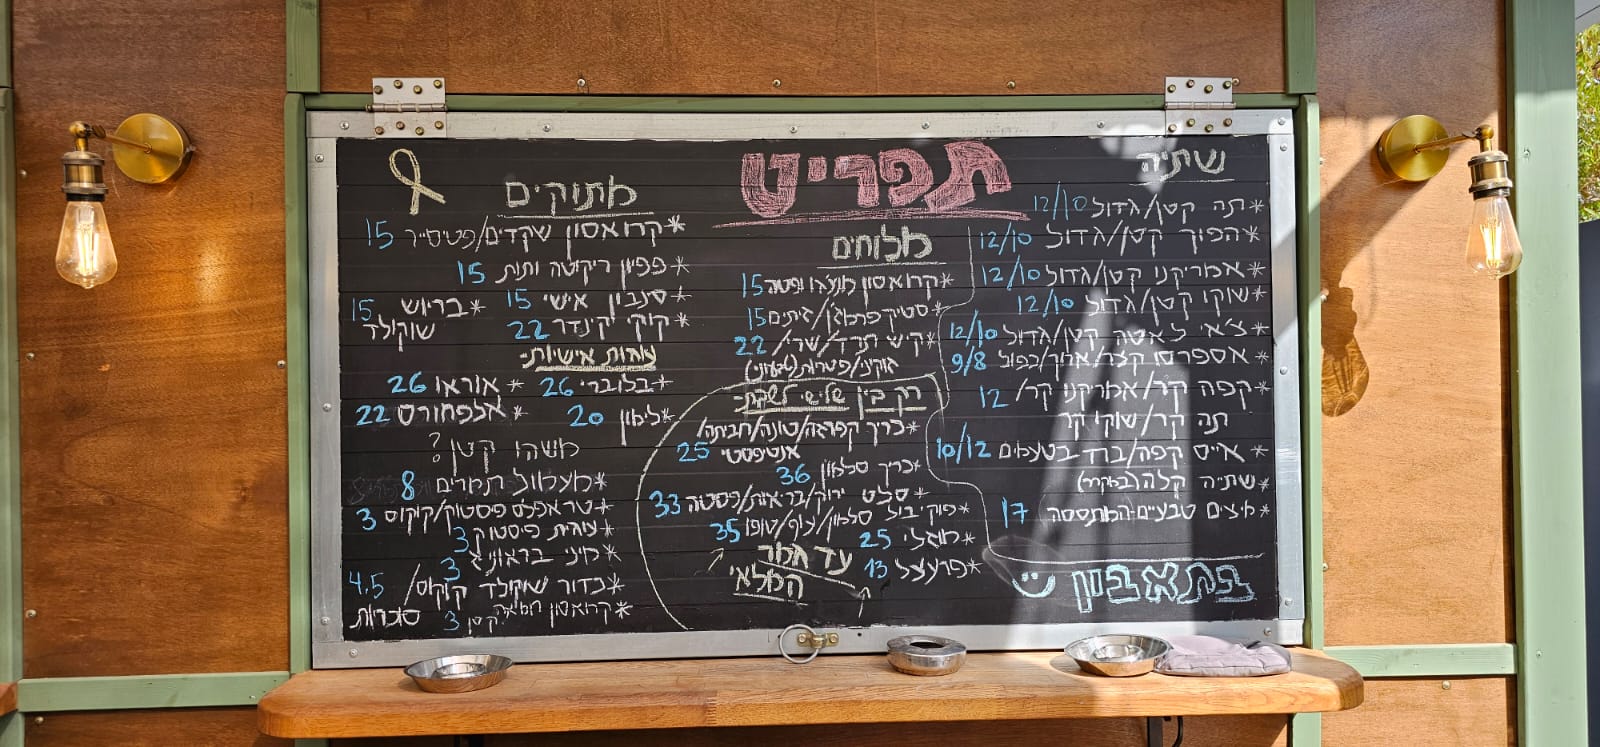 תפריט
שתיה
*תה קטן/גדול 12/10
*הפוך קטן/גדול 12/10
*אמריקנו קטן/גדול 12/10
*שוקו קטן/גדול 12/10
*צ'אי לאטה קטן/גדול 12/10
*אספרסו קצר/ארוך/כפול 9/8
*קפה קר/אמריקנו קר/ 12
תה קר/שוקו קר
*אייס קפה/ברד בטעמים 10/12
*שתיה קלה (במקרר)
*מיצים טבעיים-המתססה 17
בתאבון
מלוחים
*קרואסון מוצרלה ופטה 15
*סטיק פרמזן/זיתים 15
*קיש תרד/שרי/ 22
זוקיני/פטריות (טבעוני)
רק בין שלישי לשבת:-
*כריך קפרזה/טונה/חביתה/
אנטיפסטי 25
*כריך סלמון 36
*סלט ירוק/בריאות/פסטה 33
*פוקי בול סלמון/עוף/טופו 35
*מוזלי 25
*פרעצל 13
עד גמר
המלאי
מתוקים
*קרואסון שקדים/פטיסייר 15
*פפיון ריקוטה ותות 15
*סנבין אישי 15
*בריוש 15
שוקולד
*קוקי קינדר 22
עוגות אישיות:-
*בלוברי 26
*אוראו 26
*לימון 20
*אלפחורס 22
משהו קטן?
*מעמול תמרים 8
*טראפלס פיסטוק/קוקוס 3
*עוגיית פיסטוק 3
*מיני בראוניז 3
*כדור שוקולד קוקוס/ 4.5
סוכריות
*קרואסון חמאה קטן 3